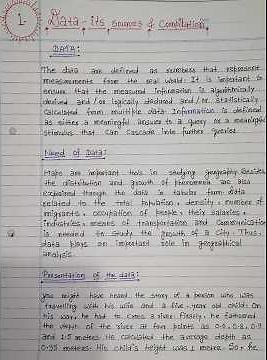 1 Data - its sources & Compilation.
DATA:
The data are defined as numbers that represent
measurements from the real world. It is important to
ensure that the measured information is algorithmically
derived and / or logically deduced and / or statistically
calculated from multiple data. Information is defined
as either a meaningful answer to a query or a meaningful
stimulus that can cascade into further queries.
Need of Data:
Maps are important tools in studying geography. Besides,
the distribution and growth of phenomena are also
explained through the data in tabular form. data
related to the total population, density, number of
migrants, occupation of people, their salaries,
industries, means of transportation and communication
is needed to study the growth of a city. Thus,
data plays an important role in geographical
analysis.
Presentation of the data:
You might have heard the story of a person who was
travelling with his wife and a five-year old child. On
his way, he had to cross a river. Firstly, he fathomed
the depth of the river at four points as 0.6, 0.8, 0.9
and 1.5 metres. He calculated the average depth as
0.95 metres. His child's height was 1 metre. So, he